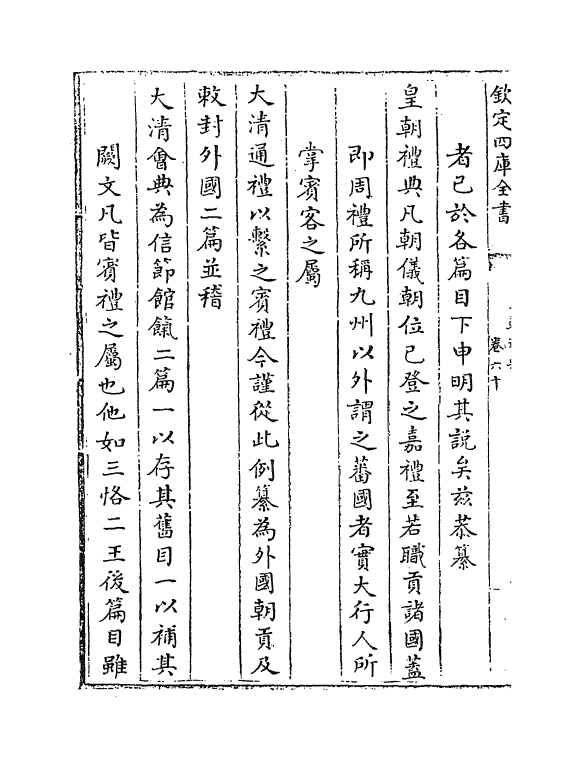 欽定四庫全書
卷六十
者已於各篇目下申明其説矣兹恭纂
皇朝禮典凡朝儀朝位已登之嘉禮至若職貢諸國蓋
即周禮所稱九州以外謂之蕃國者實大行人所
掌賓客之屬
大清通禮以繫之賓禮今謹從此例纂為外國朝貢及
敕封外國二篇並稽
大清會典為信節館餼二篇一以存其舊目一以補其
闕文凡皆賓禮之屬也他如三恪二王後篇目雖